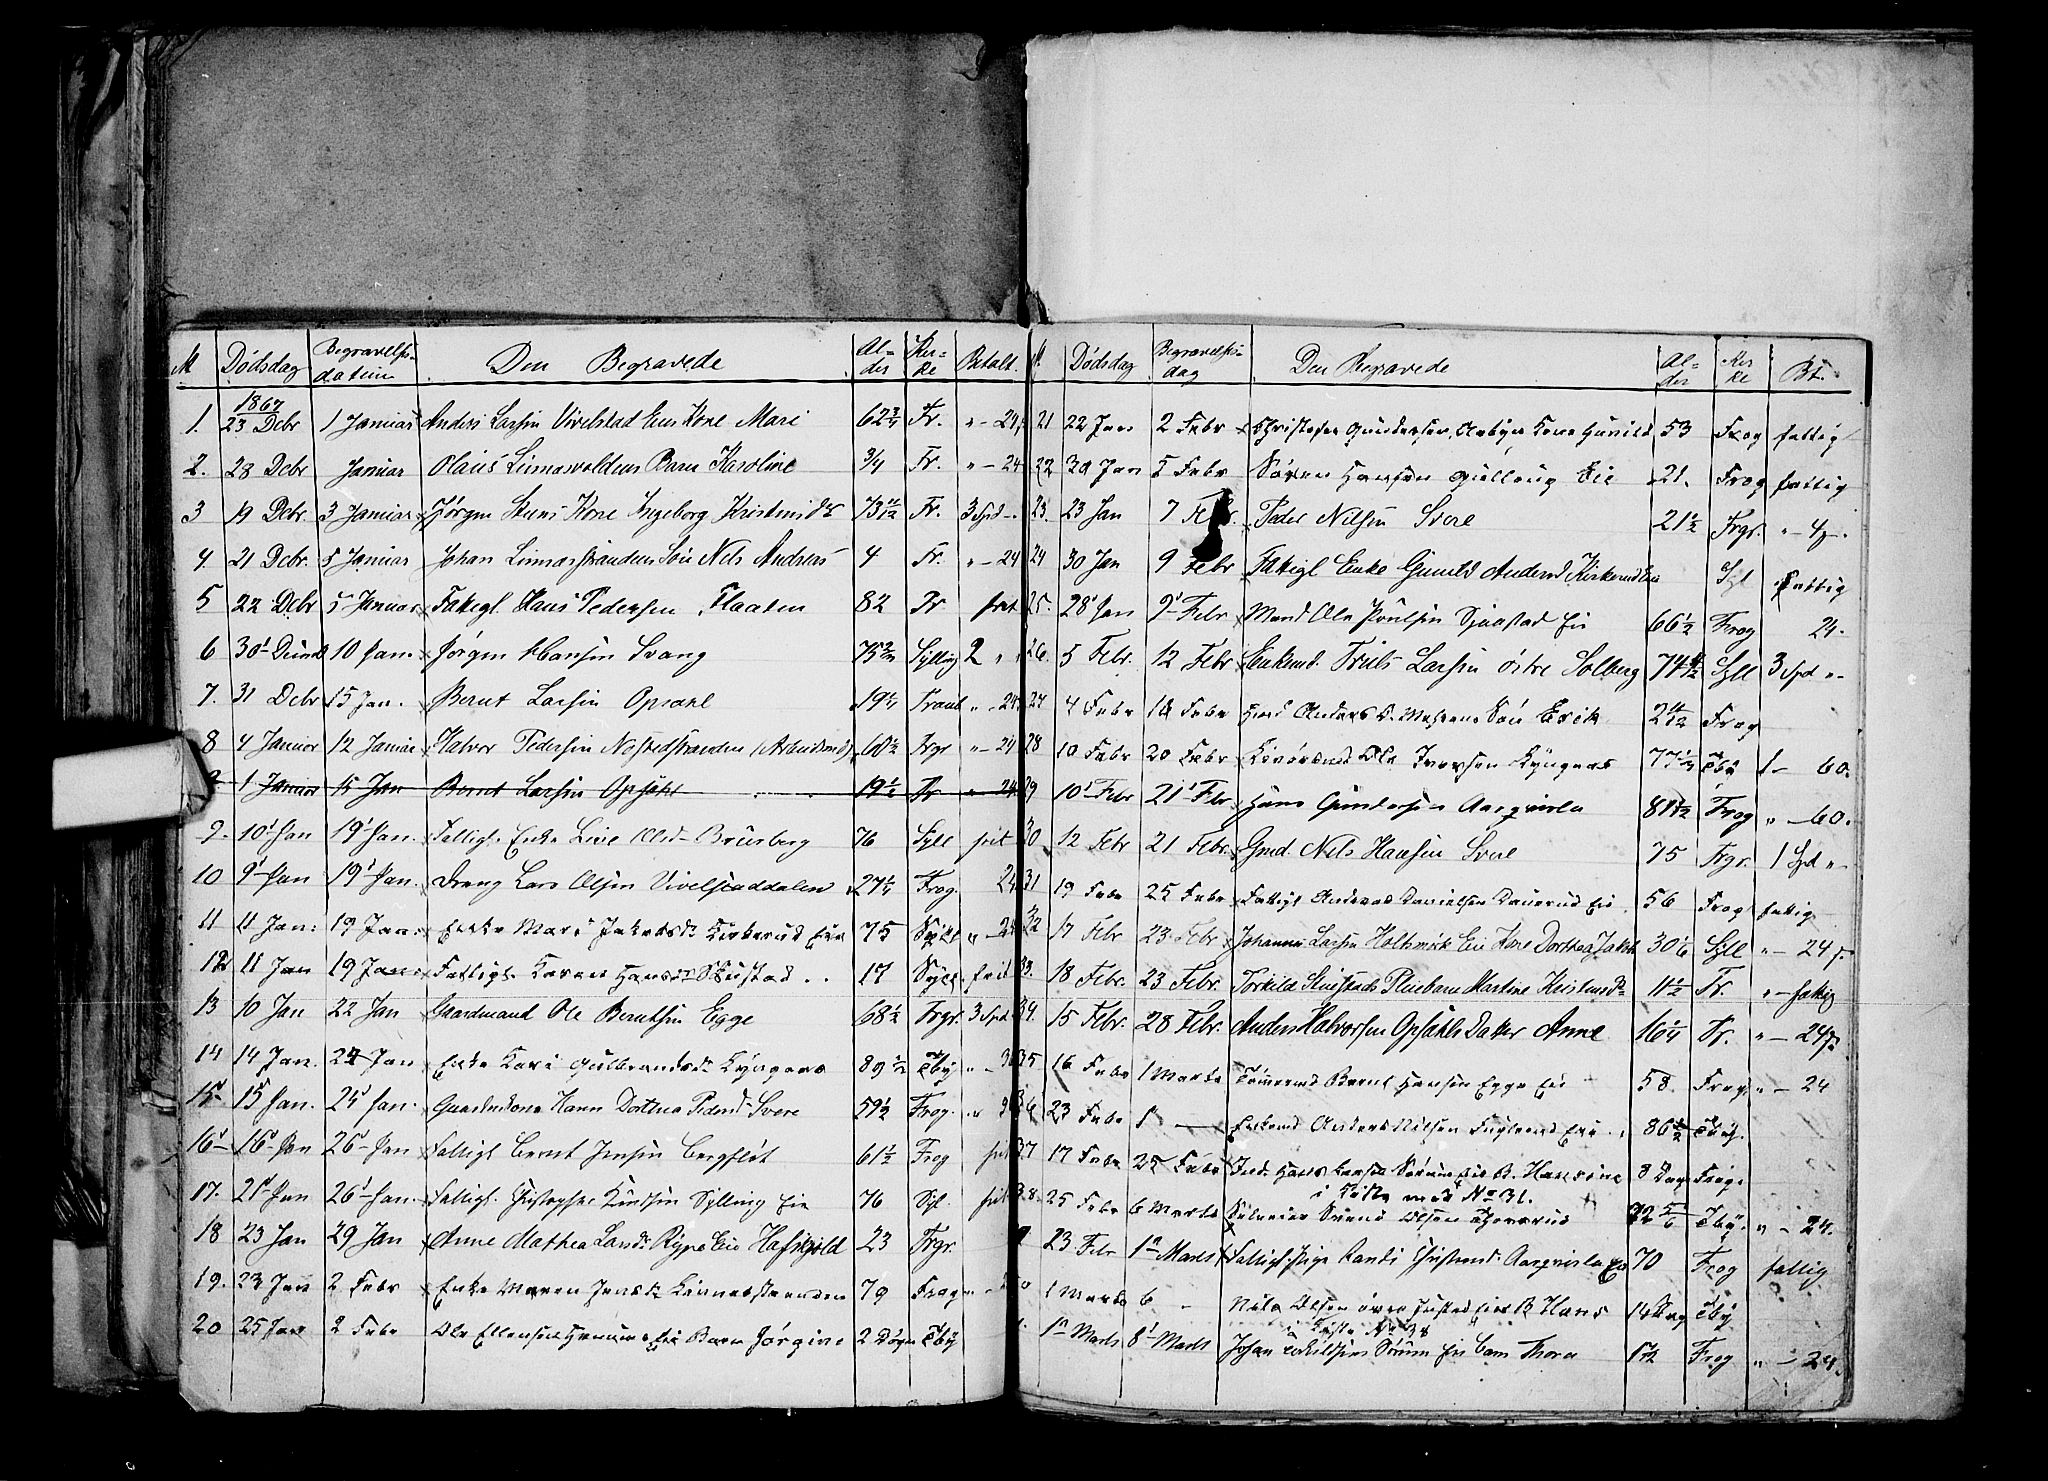 № Dödsdag Begravelses- datum Den Begravede Al- der Kir- ke Betalt.
1867
1. 23 Debr 1 Januar Anders Larsen Vivelstad Eies Kone Mari 62 3/4 Fr. " - 24
2. 28 Debr Januar Olaus Linnesvoldens Barn Karoline 3/4 Fr. " - 24
3 19 Debr 3 Januar Jörgen Kone Ingeborg Kristensdr 73 Fr. 3 Spd -
4. 21 Debr. 5 Januar Johan Linnesstrandens Sön Nils Andreas 4 Fr. " - 24
5 22 Debr 5 Januar Fattigl. Hans Pedersen Flaaten 82 Fr frit
6 30 10 Jan. Jörgen Hansen Svang 75 Sylling 2 " "
7. 31 Debr 15 Jan. Bernt Larsen Opsahl 19 1/2 " - 24
8 4 Januar 12 Januar Halvor Pedersen Nestedstranden (Arbeidsmd) 60 1/2 Frgr " - 24
9 1 Januar 15 Jan Bernt Larsen Opsahl 19 1/2 Fr " 24
9. 10 Jan 19 Jan. Fattigl. Enke Live Olsd. Bruusberg 76 Syll frit
10 9 Jan 19 Jan. Dreng Lars Olsen Vivelstaddalen 27 1/4 Frog. 24
11 11 Jan: 19 Jan. Enke Mari Jakobsdr Kirkerud Eie 75 Syll " - 24
12 11 Jan 19 Jan. Fattigl. Karen Hansdr Skustad 17 Syll frit
13 10 Jan 22 Jan Gaardmand Ole Berntsen Egge 68 1/2 Frgr. 3 Spd
14 14 Jan. 24 Jan Enke Kari Gulbrandsdr Kyngaas 89 1/2 Tby " - 36
15 15 Jan. 25 Jan. Gaardmkone Karen Dorthea Pedersd. Svere 59 1/2 Frog. " 36
16 16 Jan 26 Jan Fattigl. Bernt Jensen Bergflöt 61 1/2 Frog frit
17. 21 Jan 26 Jan. Fattigl. Christopher Knudsen Sylling Eie 76 Syl. frit
18 23 Jan 29 Jan Anne Mathea Larsdr Rype Eie Hafsköld 23 Frgr.
19. 23 Jan 2 Febr Enke Maren Jensdr Linnesstranden 79 Frog " -
20 25 Jan 2 Febr Ole Ellensen Eie Barn Jörgine 2 Dögn Tby
№. Dödsdag Begravelses- dag Den Begravede Al- der Kir- ke Bt.
21 22 Jan 2 Febr Christofer Gundersen Aabye Kone Gunild 53 Frog fattig
22 30 Jan 5 Febr Sören Hansen Gullaug Eie 21. Frog fattig
23. 23 Jan 7 Febr. Peder Nilsen Svere 21 1/2 Frgr. "
24 30 Jan 9 Febr Fattigl Enke Gunild Andersd Kirkerud Eie Syl fattig
25. 28 Jan 9 Febr Mand Ole Poulsen Sjaastad Eie 66 1/2 Frog 24
26. 5 Febr. 12 Febr Enkemd. Truls Larsen östre Solberg 74 Syll 3 Spd "
27 4 Febr 14 Febr Anders Sön Erik 2 Frog
28 10 Febr 20 Febr Ole Iversen Kyngaas 77 1/2 Tby 1 - 60.
29 10 Febr 21 Febr Hans Gundersen Aarqvisla 81 1/2 Frog " - 60.
30. 12 Febr 21 Febr. Gmd. Nils Hansen Svere 75 Frgr. 1 Spd "
31 19 Febr 25 Febr Fattigl Anders Danielsen Daverud Eie 56 Frog fattig
32 17 Febr 23 Febr Johannes Larsen Holtsmark Eie Kone Dorthea Jakobsd 30 1/6 Syll " - 24
33. 18 Febr. 23 Febr. Torkild Pleiebarn Martine Kristensdr 11 1/2 Fr. " - fattig
34. 15 Febr. 28 Febr. Anders Halvorsen Opsahls Datter Anne 16 1/4 Fr. " - 24
35. 16 Febr 1 Marts Tömmermd Bernt Hansen Egge Eie 58. Frog. " - 24
36 23 Febr 1 — Enkemd Anders Nilsen Fuglerud Eie 86 1/2 Tby.
37 17 Febr 25 Febr Hans Larsen Sörum Eie B. Hansine 8 Dage Frog.
i Kiste med № 31.
38. 25 Febr 6 Marts Svend Olsen 72 5/6 Tby. " - 24.
23 Febr 1 Marts Fattigl. Pige Randi Christensd. Aarqvisla Eie 70 Frog fattig
1 Marts 6 " Nils Olsen övre Justad Eie B Hans 14 Dag Tby
i Kiste № 38
1 Marts 8 Marts Johan Eskildsen Sörum Eie Barn Thora 1 1/2 Frog " - 24.